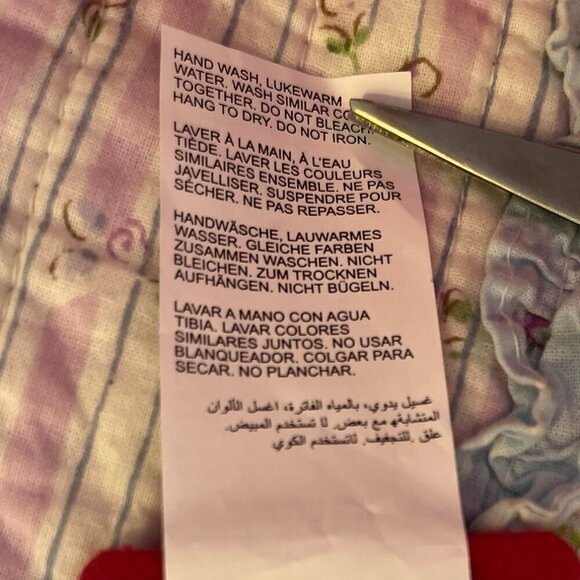 HAND WASH, LUKEWARM
WATER. WASH SIMILAR
TOGETHER. DO NOT BLEACH.
HANG TO DRY. DO NOT IRON.
LAVER À LA MAIN, À L'EAU
TIÈDE, LAVER LES COULEURS
SIMILAIRES ENSEMBLE. NE PAS
JAVELLISER. SUSPENDRE POUR
SÉCHER. NE PAS REPASSER.
HANDWÄSCHE, LAUWARMES
WASSER. GLEICHE FARBEN
ZUSAMMEN WASCHEN. NICHT
BLEICHEN. ZUM TROCKNEN
AUFHÄNGEN. NICHT BÜGELN.
LAVAR A MANO CON AGUA
TIBIA. LAVAR COLORES
SIMILARES JUNTOS. NO USAR
BLANQUEADOR. COLGAR PARA
SECAR. NO PLANCHAR.
غسيل يدوي، بالمياه الفاترة، اغسل الألوان
المتشابهه مع بعض. لا تستخدم المبيض.
علق .للتجفيف. لاتستخدم الكوي